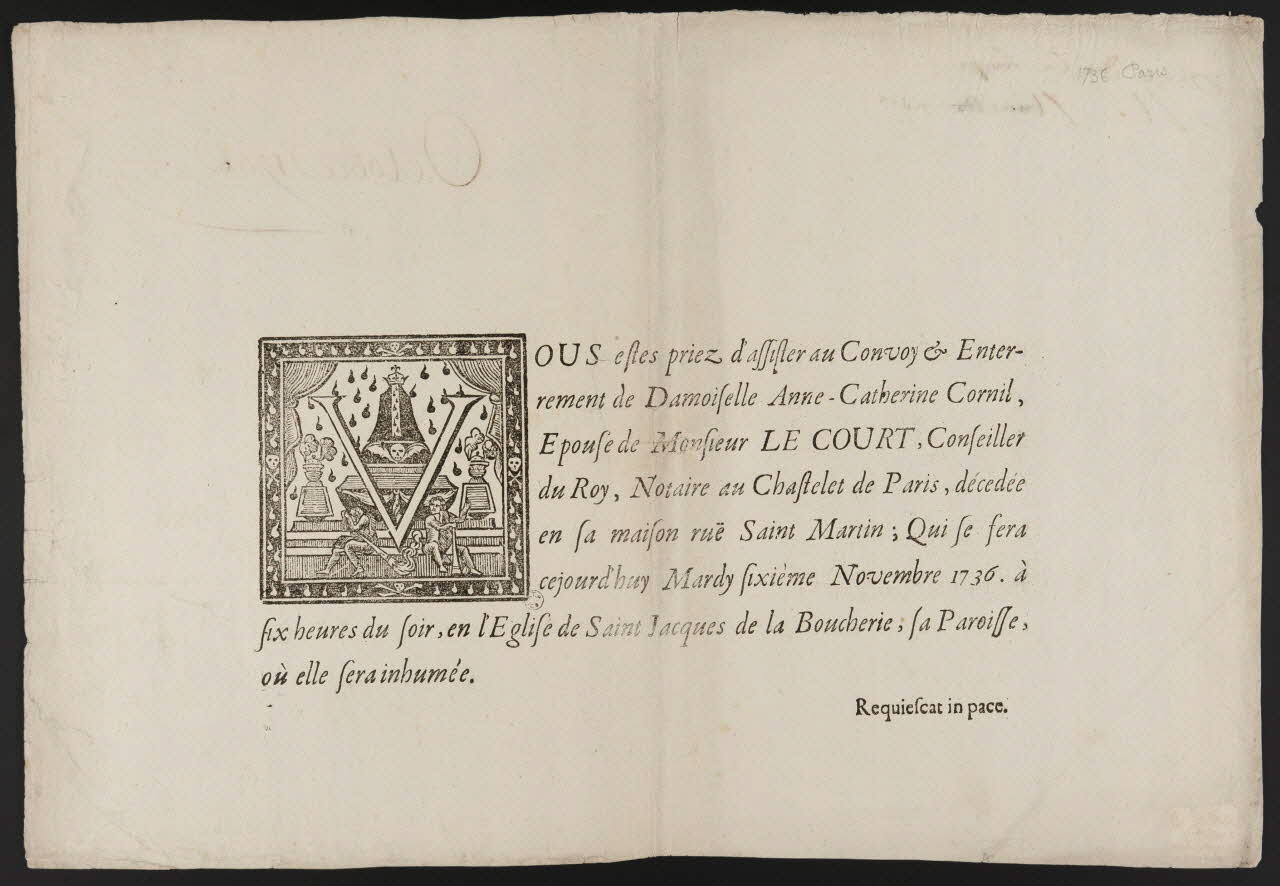 1736 Paris
VOUS estes priez d'assister au Convoy & Enter-
rement de Damoiselle Anne-Catherine Cornil,
Epouse de Monsieur LE COURT, Conseiller
du Roy, Notaire au Chastelet de Paris, décedée
en sa maison ruë Saint Martin; Qui se fera
cejourd'huy Mardy sixiéme Novembre 1736. à
six heures du soir, en l'Eglise de Saint Jacques de la Boucherie, sa Paroisse,
où elle sera inhumée.
Requiescat in pace.